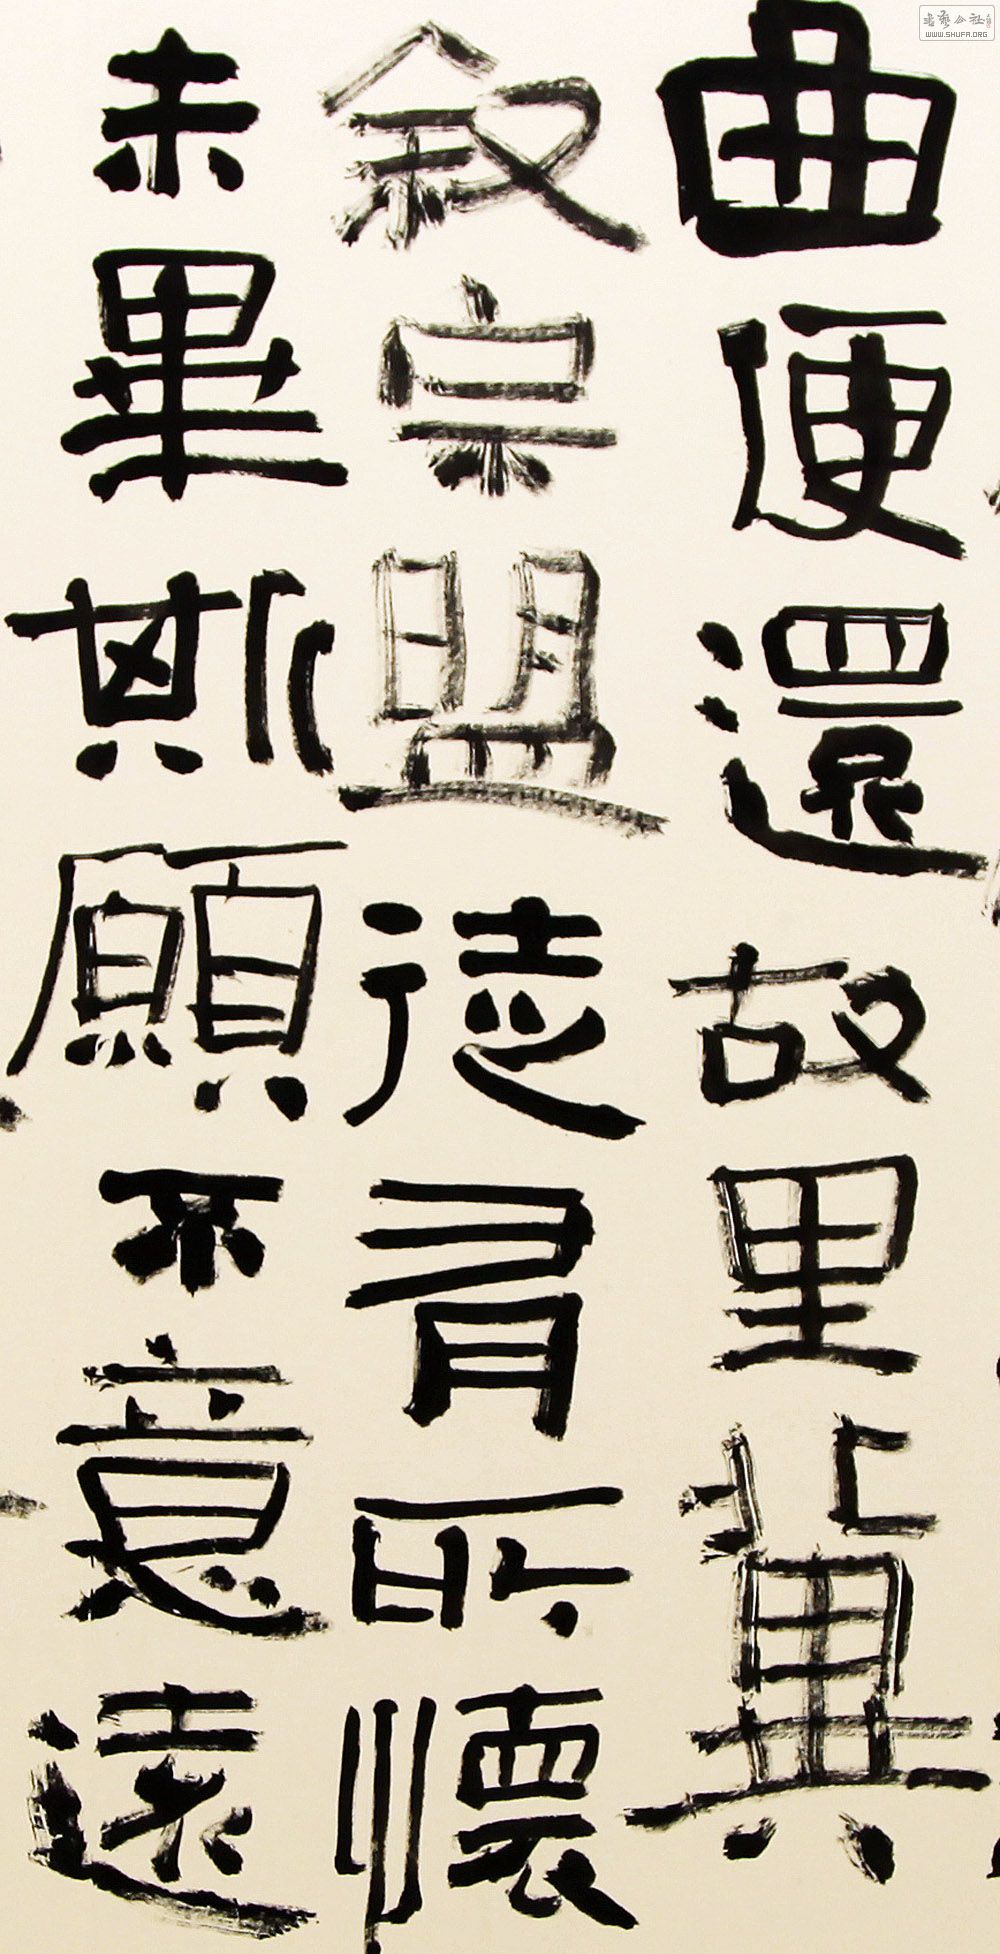 曲便還故里冀
叙宗盟徒有所懷
未畢斯願不意遠
书艺公社
WWW.SHUFA.ORG